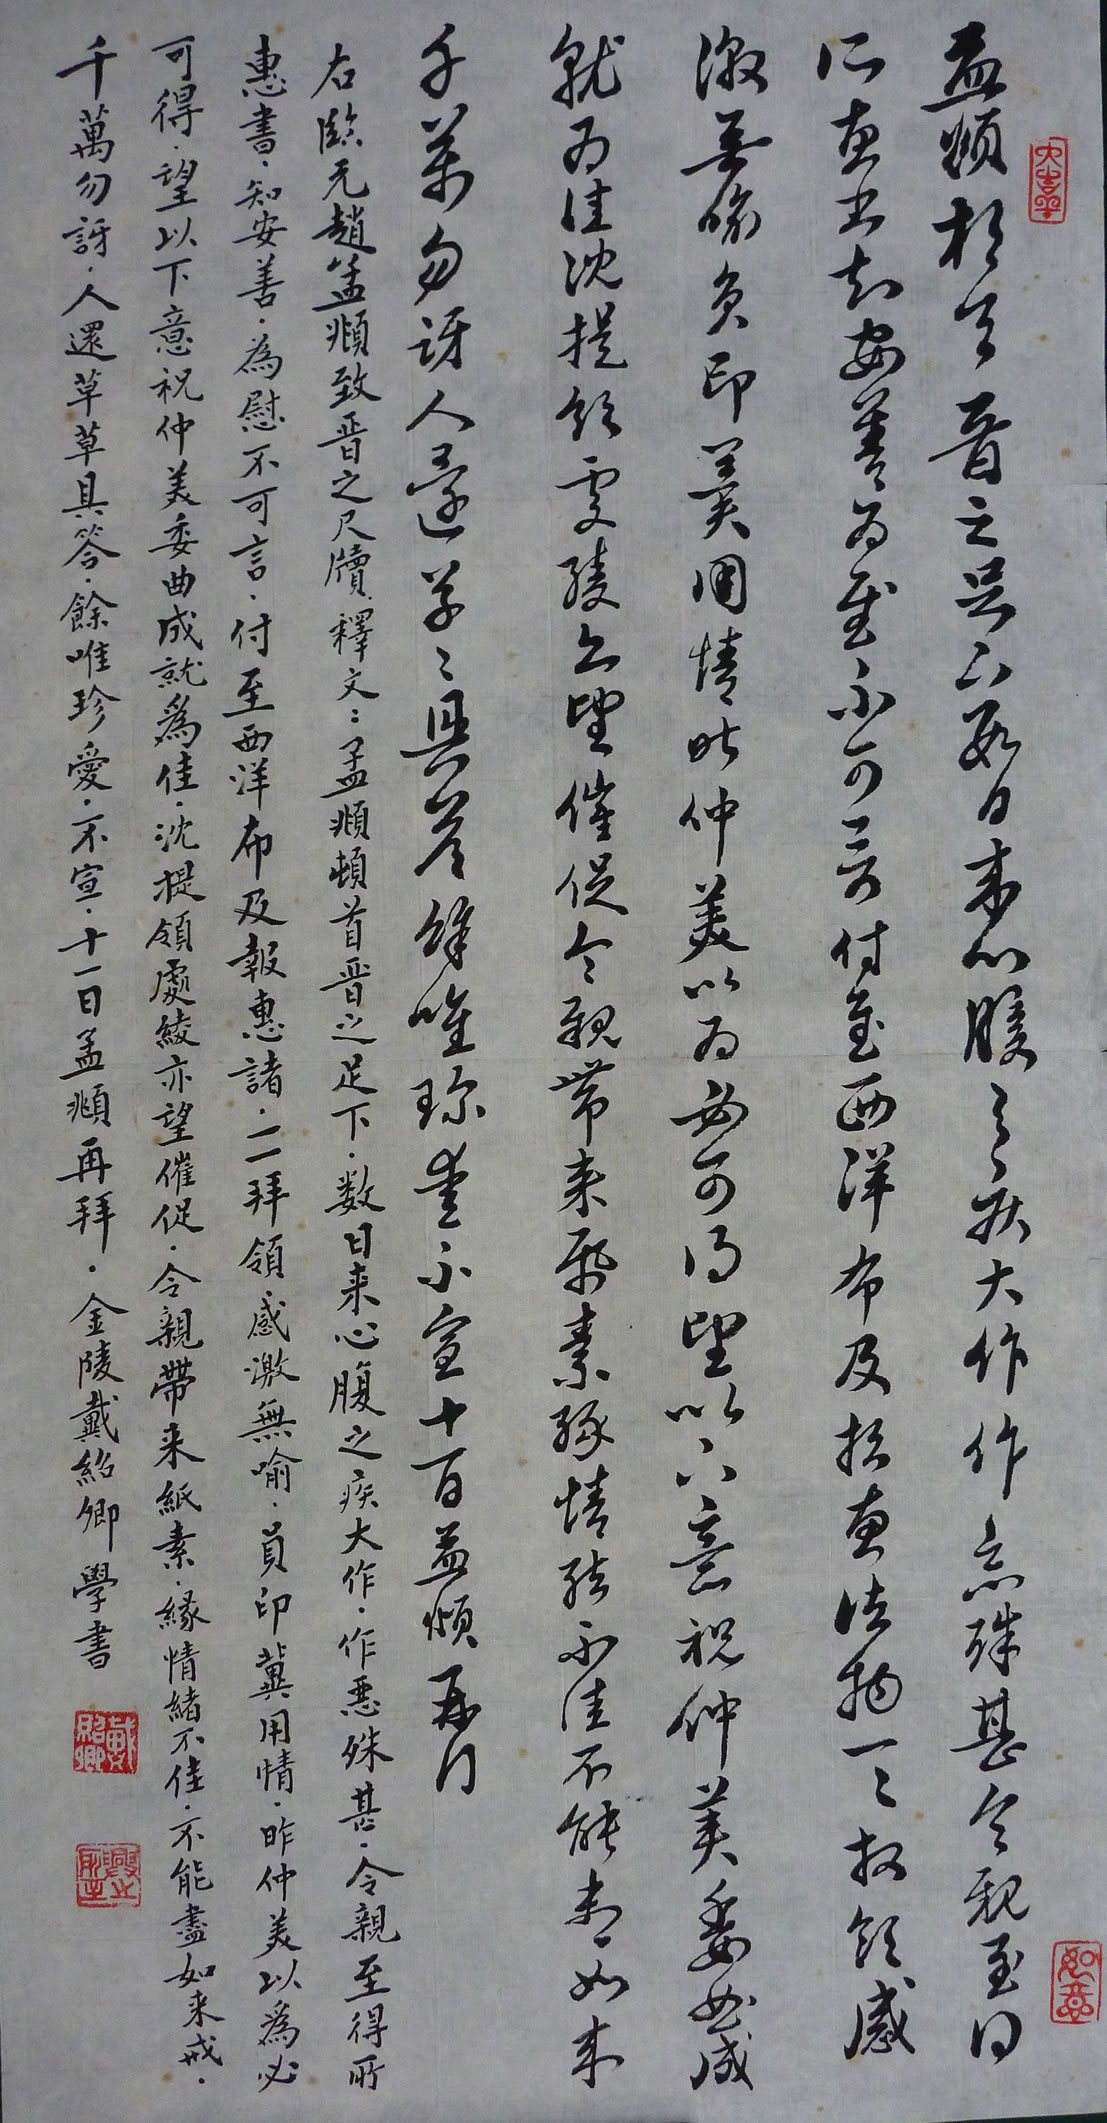 孟頫頓首晉之足下數日來心腹之疾大作作惡殊甚令親至得
所惠書知安善為慰不可言付至西洋布及報惠諸物一々拜領感
激無喻負印冀用情昨仲美以為必可得望以下意祝仲美委曲成
就為佳沈提領處綾亦望催促令親帶来紙素緣情緒不佳不能盡如来
千萬勿訝人還草々具答餘唯珍愛不宣十一日孟頫再拜
右臨元趙孟頫致晋之尺牘.釋文：孟頫頓首晋之足下.数日来心腹之疾大作.作悪殊甚.令親至得所
惠書.知安善.為慰不可言.付至西洋布及報惠諸.一一拜領.感激無喻.員印冀用情.昨仲美以為必
可得.望以下意祝仲美委曲成就為佳.沈提領處綾亦望催促.令親帶来紙素.緣情緒不佳.不能盡如来戒.
千萬勿訝.人還草草具答.餘唯珍愛.不宣.十一日孟頫再拜.金陵戴紹卿學書
戴紹卿
如意